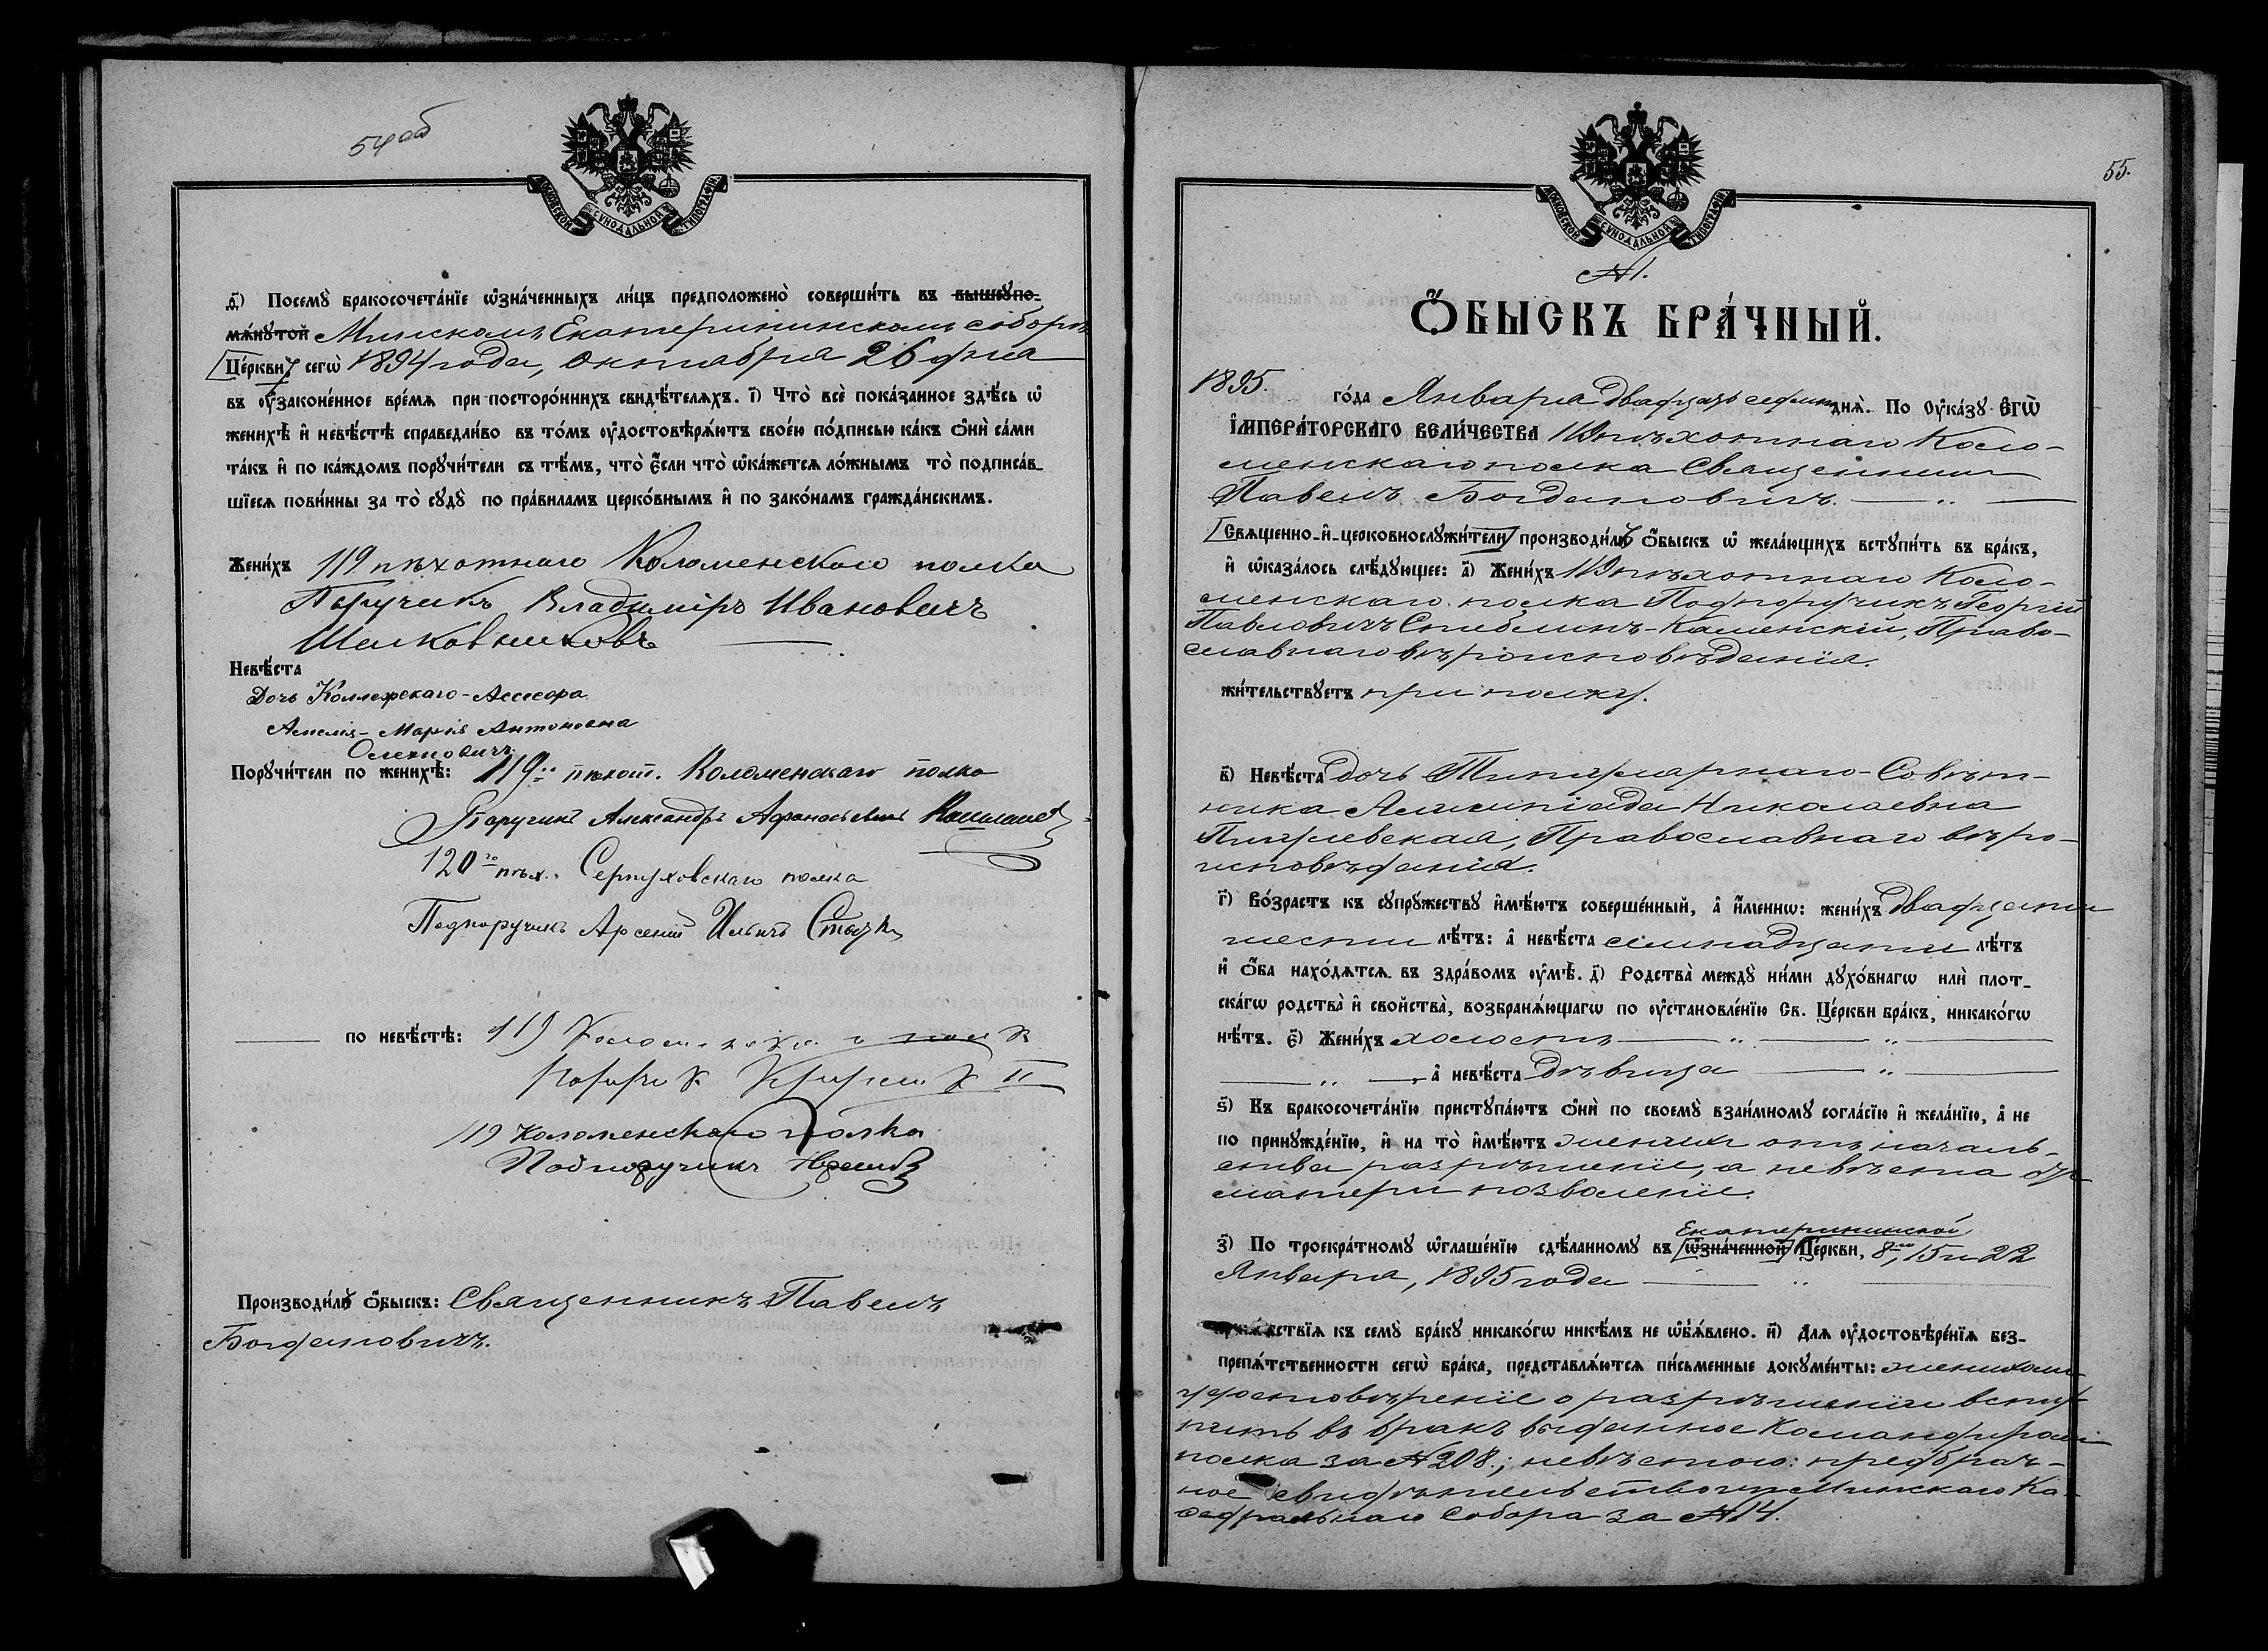 54 об
МОСКОВСКОЙ СУНОДАЛЬНОЙ ТИПОГРАФІИ
д҃і) Посемꙋ̀ бракосочета́нїе ѡ҆зна́ченныхъ ли́цъ предположено̀ соверши́ть въ вышеꙋпо-
мѧ́нꙋтой Минскомъ Екатерининскомъ соборѣ
Це́ркви, сегѡ̀ 1894 года, Октября 26 дня
въ ᲂу҆законе́нное вре́мѧ при посторо́ннихъ свидѣ́телѧхъ. і҃) Что̀ всѐ пока́занное здѣ́сь ѡ҆
женихѣ̀ и҆ невѣ́стѣ справедли́во въ то́мъ ᲂу҆достовѣрѧ́ютъ свое́ю по́дписью ка́къ ѻ҆нѝ са́ми
та́къ и҆ по ка́ждомъ порꙋчи́тели съ тѣ́мъ, что̀ є҆́сли что̀ ѡ҆ка́жетсѧ ло́жнымъ то̀ подписа́в-
шїесѧ пови́нны за то̀ сꙋдꙋ̀ по пра́виламъ церко́внымъ и҆ по зако́намъ гражда́нскимъ.
Жени́хъ 119 пѣхотнаго Коломенскаго полка
Поручикъ Владиміръ Ивановичъ
Шелковниковъ
Невѣ́ста
Дочь Коллежскаго-Ассесора
Амелія-Марія Антоновна
Олехновичъ.
Порꙋчи́тели по женихѣ̀: 119го пѣхот. Коломенскаго полка
Поручикъ Александръ Афанасьевичъ
120го пѣх. Серпуховскаго полка
Подпоручикъ Арсеній Ильичъ
по невѣ́стѣ: 119 Коломенскаго полка
II
119 Коломенскаго полка
Подпоручикъ
Производи́лъ ѻ҆́быскъ: Священникъ Павелъ
Богдановичъ.
55.
МОСКОВСКОЙ СУНОДАЛЬНОЙ ТИПОГРАФІИ
№ 1.
Ѻ҆́БЫСКЪ БРА́ЧНЫЙ.
1895. го́да Января двадцать седьмаго днѧ̀. По ᲂу҆ка́зꙋ Є҆ГѠ̀
І҆МПЕРА́ТОРСКАГО ВЕЛИ́ЧЕСТВА 119 пѣхотнаго Коло-
менскаго полка Священникъ
Павелъ Богдановичъ.
Свѧщенно-и҆-церковнослꙋжи́тели производи́лъ ѻ҆́быскъ ѡ҆ жела́ющихъ встꙋпи́ть въ бра́къ,
и҆ ѡ҆каза́лось слѣ́дꙋющее: а҃) Жени́хъ 119 пѣхотнаго Коло-
менскаго полка Подпоручикъ Георгій
Павловичъ Стеблинъ-Каменскій, Право-
славнаго вѣроисповѣданія.
жи́тельствꙋетъ при полку.
в҃) Невѣ́ста дочь Титулярнаго-Совѣт-
ника Николаевна
Православнаго вѣро-
исповѣданія.
г҃) Во́зрастъ къ сꙋпрꙋ́жествꙋ и҆мѣ́ютъ соверше́нный, а҆ и҆́меннѡ: жени́хъ двадцати
шести лѣ́тъ: а҆ невѣ́ста семнадцати лѣ́тъ
и҆ ѻ҆́ба нахо́дѧтсѧ въ здра́вомъ ᲂу҆мѣ̀. д҃) Родства̀ междꙋ̀ ни́ми дꙋхо́внагѡ илѝ плот-
ска́гѡ родства̀ и҆ свойства̀, возбранѧ́ющагѡ по ᲂу҆становле́нїю Св. Це́ркви бра́къ, никако́гѡ
нѣ́тъ. є҃) Жени́хъ холостъ
, а҆ невѣ́ста дѣвица
ѕ҃) Къ бракосочета́нїю пристꙋпа́ютъ ѻ҆нѝ по своемꙋ̀ взаи́мномꙋ согла́сїю и҆ жела́нїю, а҆ не
по принꙋжде́нїю, и҆ на то̀ и҆мѣ́ютъ женихъ отъ началь-
ства разрѣшеніе, а невѣста отъ
матери позволеніе.
Екатерининской
з҃) По троекра́тномꙋ ѡ҆глаше́нїю сдѣ́ланномꙋ въ ѡ҆зна́ченной Це́ркви, 8го, 15 и 22
Января, 1895 года
препѧ́тствїѧ къ семꙋ̀ бра́кꙋ никако́гѡ никѣ́мъ не ѡ҆б̾ѧ́влено. и҃) Длѧ ᲂу҆достовѣре́нїѧ без-
препѧ́тственности сегѡ̀ бра́ка, представлѧ́ютсѧ пи́сьменные докꙋме́нты: женихомъ
удостовѣреніе о разрѣшеніи всту-
пить въ бракъ выданное Командиромъ
полка за № 208.; невѣстою: предбрач-
ное свидѣтельство изъ Минскаго Ка-
ѳедральнаго Собора за № 14.